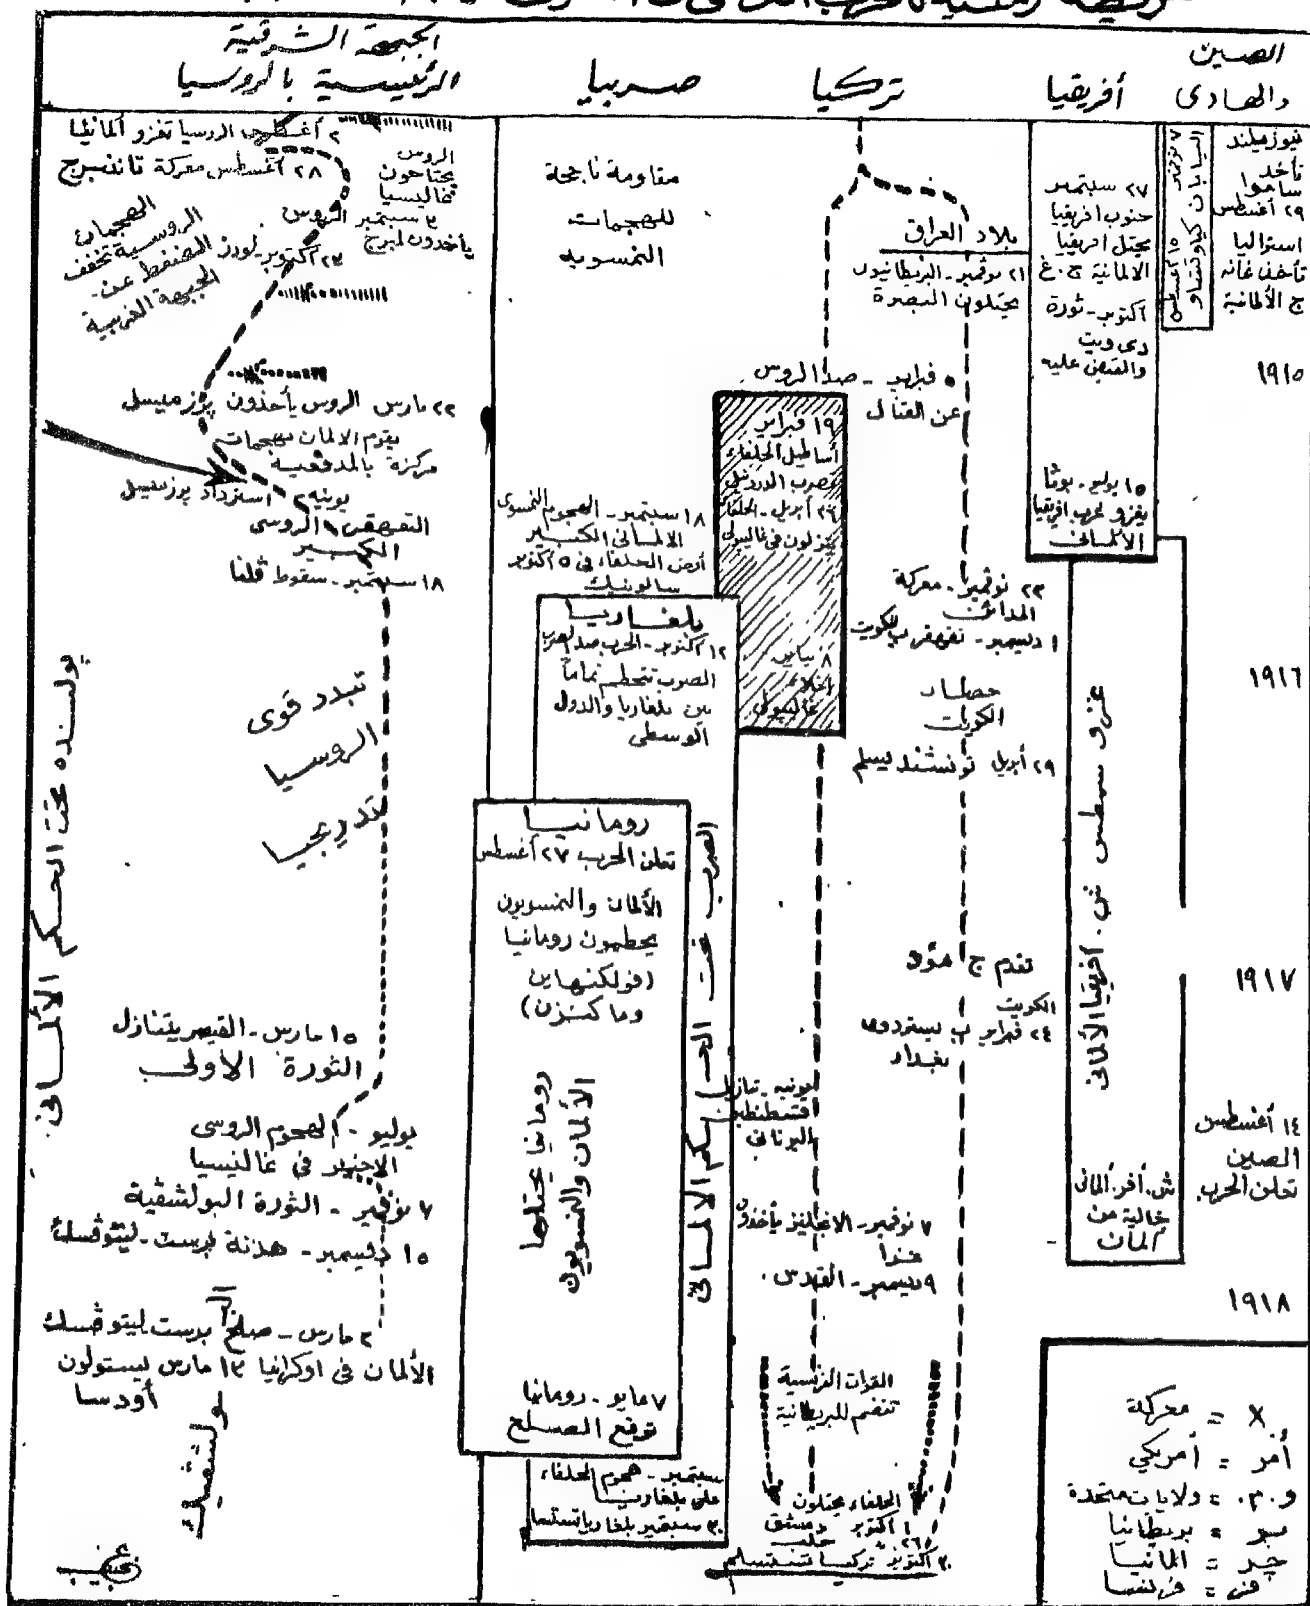 الصين
والهادى
أفريقيا
تركيا
صربيا
الجبهة الشرقية
الرئيسية بالروسيا
نيوزيلند
تأخذ
ساموا
٢٩ أغسطس
استراليا
تأخذ غانه
ج الألمانية
١٩١٥
١٩١٦
١٩١٧
١٤ أغسطس
الصين
تعلن الحرب
١٩١٨
٧ نوفمبر
٢٧ سبتمبر
جنوب افريقيا
يحتل افريقيا
الالمانية ج.غ
اكتوبر - ثورة
دى ويت
والقبض عليه
١٥ يوليو - بوثا
يغزو غرب افريقيا
الألمانى
غزو سمطس ش. أفريقيا الألمانى
ش. أفر. ألمانى
خالية من
ألمان
بلاد العراق
٢١ نوفمبر - البريطانيون
يحتلون البصرة
فبراير - صد الروس
عن القنال
١٩ فبراير
أساطيل الحلفاء
تضرب الدردنيل
٢٦ أبريل - الحلفاء
ينزلون فى غاليبولى
٨ يناير
إخلاء
غاليبولى
٢٣ نوفمبر - معركة
المدائن
١ ديسمبر - تقهقر ب للكويت
حصار
الكويت
٢٩ أبريل تونشند يسلم
تقدم ج مود
الكويت
٢٤ فبراير ب يستردون
بغداد
يونيه - تنازل
قسطنطين
اليونانى
٧ نوفمبر - الانجليز يأخذون
غزا
٩ ديسمبر - القدس.
القوات الفرنسية
تنضم للبريطانية
الحلفاء يحتلون
١ اكتوبر دمشق
٢٦ " حلب
٣٠ اكتوبر تركيا تستسلم
مقاومة ناجحة
للهجمات
النمسويه
١٨ سبتمبر - الهجوم النمسوى
الالمانى الكبير
أرض الحلفاء فى ٥ اكتوبر
سالونيك
بلغاريا
١٢ اكتوبر - الحرب ضد الصرب
الصرب تتحطم تماماً
بين بلغاريا والدول
الوسطى
الصرب تحت الحكم الالمانى
رومانيا
تعلن الحرب ٢٧ أغسطس
الألمان والنمسويون
يحطمون رومانيا
(فولكنهاين
وماكنزن)
رومانيا يحتلها
الألمان والنمسويون
٧ مايو - رومانيا
توقع الصلح
سبتمبر - هجوم الحلفاء
على بلغاريا
٣٠ سبتمبر بلغاريا تستسلم
٢ أغسطس الروسيا تغزو ألمانيا
٢٨ أغسطس معركة تاننبرج
الروس
يجتاحون
غاليسيا
٣ سبتمبر الروس
يأخذون لمبرج
٢٣ اكتوبر - لودز
الهجمات
الروسية تخفف
الضغط عن
الجبهة الغربية
٢٢ مارس الروس يأخذون پرزميسل
يقوم الالمان بهجمات
مركزة بالمدفعية
يونيه ٢ استرداد پرزميسل
التقهقر الروسى
الكبير
١٨ سبتمبر - سقوط ڤلنا
تبدد قوى
الروسيا
تدريجيا
پولنده تحت الحكم الألمانى.
١٥ مارس - القيصر يتنازل
الثورة الأولى
يوليو - الهجوم الروسى
الاخير فى غاليسيا
٧ نوفمبر - الثورة البولشفية
١٥ ديسمبر - هدنة برست - ليتوفسك
٢ مارس - صلح برست ليتوفسك
الألمان فى اوكرانيا ١٣ مارس يستولون
أودسا
x = معركة
أمر = أمريكي
و.م. = ولايات متحدة
بر = بريطانيا
جر = المانيا
فر = فرنسا
نجيب